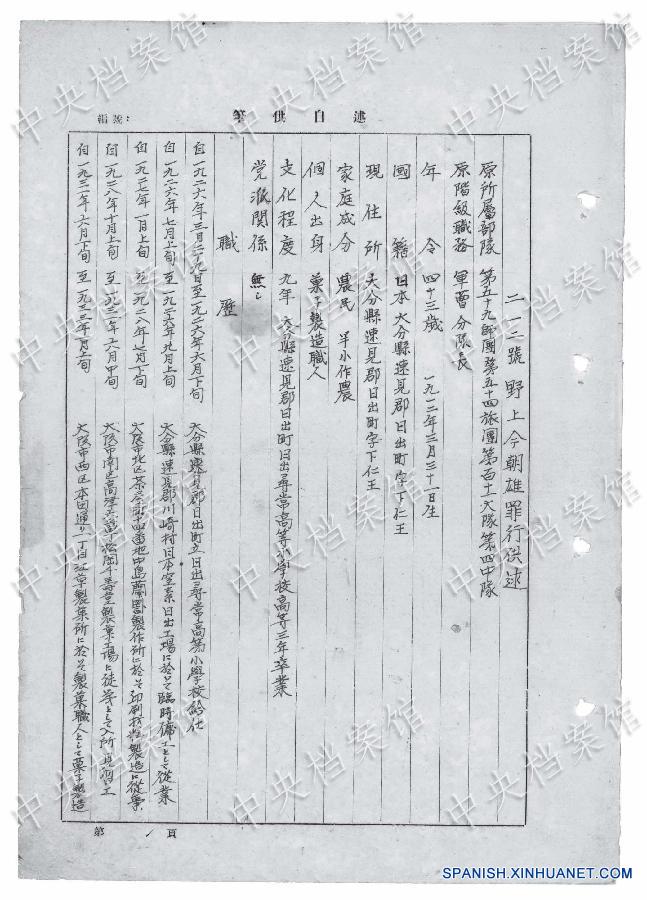 筆供自述
編號：
二一二號 野上今朝雄罪行供述
原所屬部隊 第五十九師團第五十四旅團第百十一大隊第四中隊
原階級職務 軍曹 分隊長
年令 四十三歳 一九一二年三月三十一日生
國籍 日本 大分縣速見郡日出町字下仁王
現住所 大分縣速見郡日出町字下仁王
家庭成分 農民 半小作農
個人出身 菓子製造職人
文化程度 九年 大分縣速見郡日出町日出尋常高等小学校高等三年卒業
党派関係 無し
職歴
自一九二六年三月二十九日至一九二六年六月下旬 大分縣速見郡日出町立日出尋常高等小學校給仕
自一九二六年七月上旬 至一九二六年九月上旬 大分縣速見郡川崎村日本窒素日出工場に於て臨時傭工として従業
自一九二七年一月上旬 至一九二八年七月下旬 大阪市北区茶屋町十四番地中島蘭園製作所に於て印刷材料製造に従事
自一九二八年十月上旬 至一九三一年六月中旬 大阪市南区高津 松岡千壽堂製菓工場に徒弟として入所 見習工
自一九三一年六月下旬 至一九三三年 月上旬 大阪市西区本田通り一丁目 製菓所に於て製菓職人として菓子製造
第 1 頁
中央档案馆
SPANISH.XINHUANET.COM